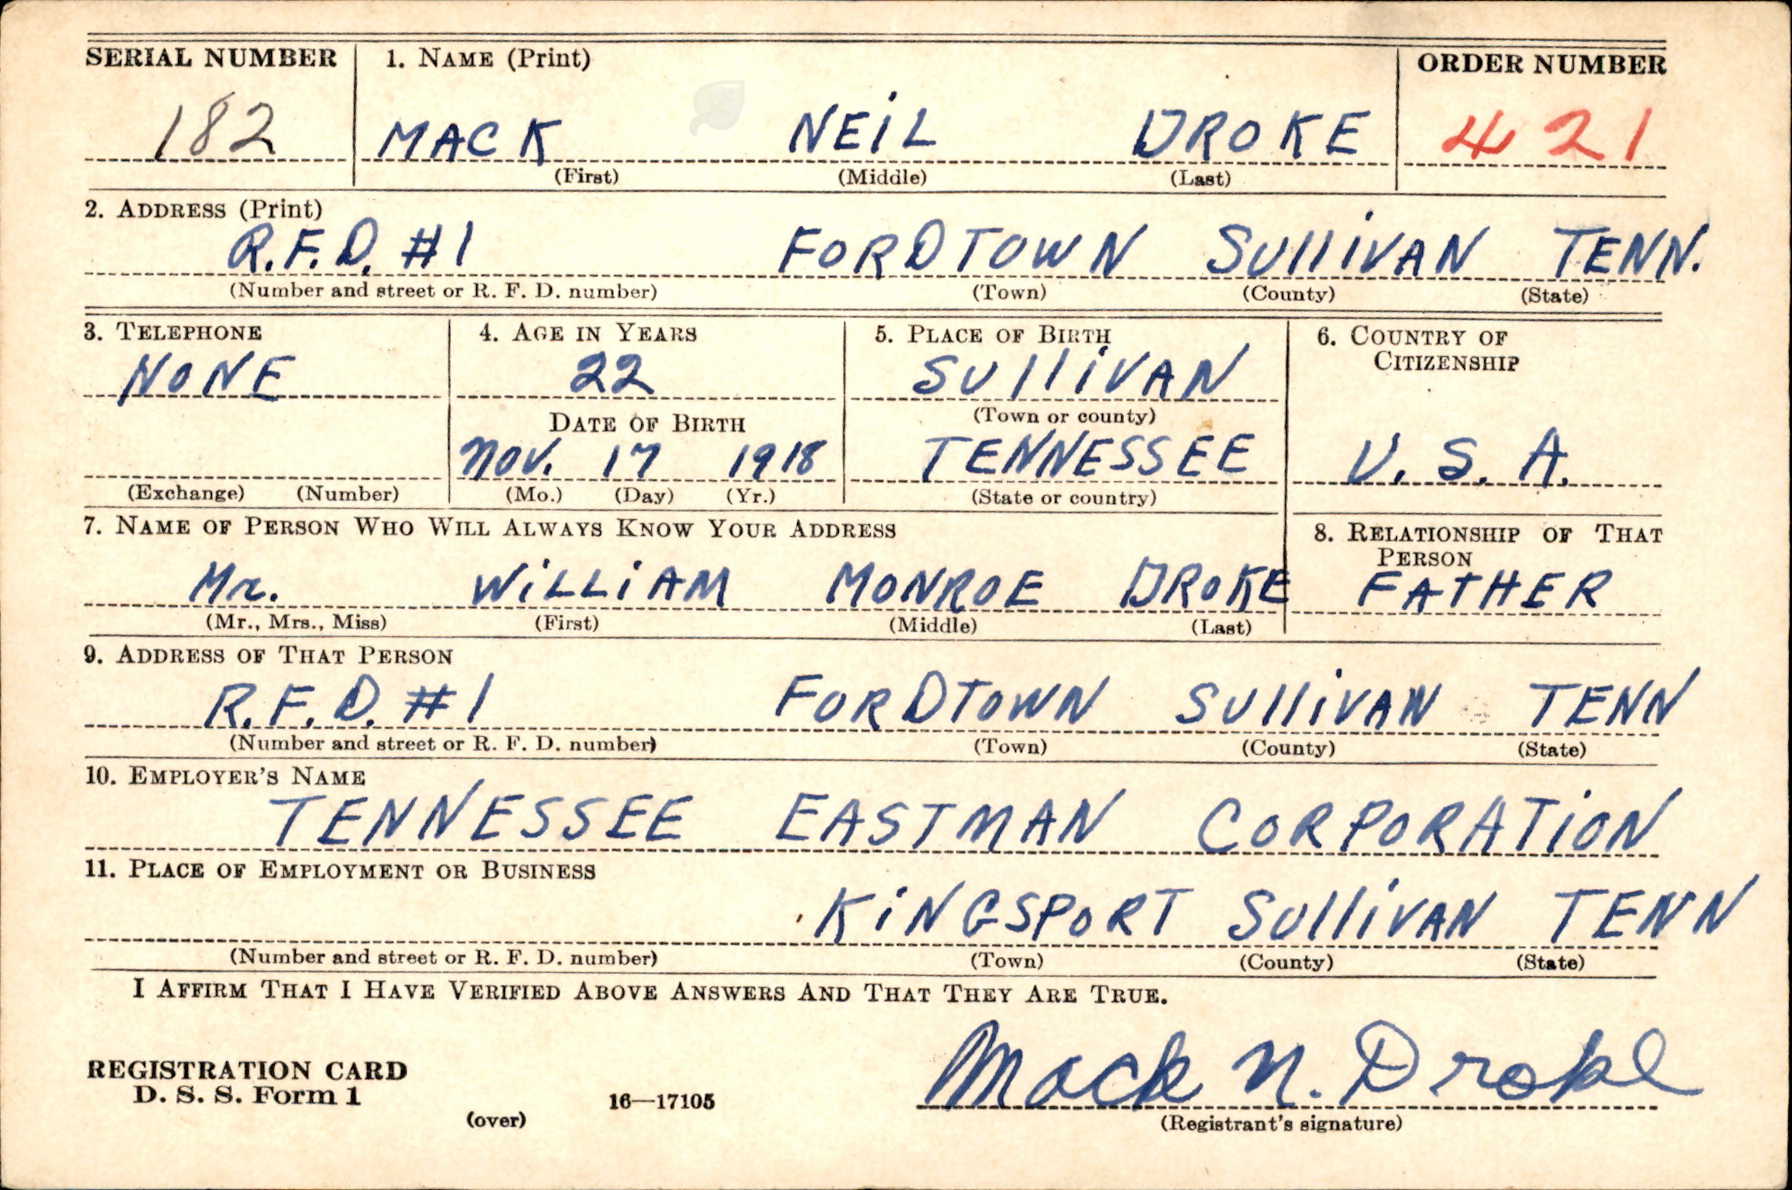 SERIAL NUMBER 1. NAME (Print) ORDER NUMBER
182 MACK NEIL DROKE 421
(First) (Middle) (Last)
2. ADDRESS (Print)
R.F.D. #1 FORDTOWN SULLIVAN TENN.
(Number and street or R. F. D. number) (Town) (County) (State)
3. TELEPHONE 4. AGE IN YEARS 5. PLACE OF BIRTH 6. COUNTRY OF CITIZENSHIP
NONE 22 SULLIVAN
DATE OF BIRTH (Town or county)
Nov. 17 1918 TENNESSEE U.S.A.
(Exchange) (Number) (Mo.) (Day) (Yr.) (State or country)
7. NAME OF PERSON WHO WILL ALWAYS KNOW YOUR ADDRESS 8. RELATIONSHIP OF THAT PERSON
Mr. WILLIAM MONROE DROKE FATHER
(Mr., Mrs., Miss) (First) (Middle) (Last)
9. ADDRESS OF THAT PERSON
R.F.D. #1 FORDTOWN SULLIVAN TENN
(Number and street or R. F. D. number) (Town) (County) (State)
10. EMPLOYER'S NAME
TENNESSEE EASTMAN CORPORATION
11. PLACE OF EMPLOYMENT OR BUSINESS
KINGSPORT SULLIVAN TENN
(Number and street or R. F. D. number) (Town) (County) (State)
I AFFIRM THAT I HAVE VERIFIED ABOVE ANSWERS AND THAT THEY ARE TRUE.
Mack N. Droke
REGISTRATION CARD
D. S. S. Form 1
(over) 16—17105 (Registrant's signature)